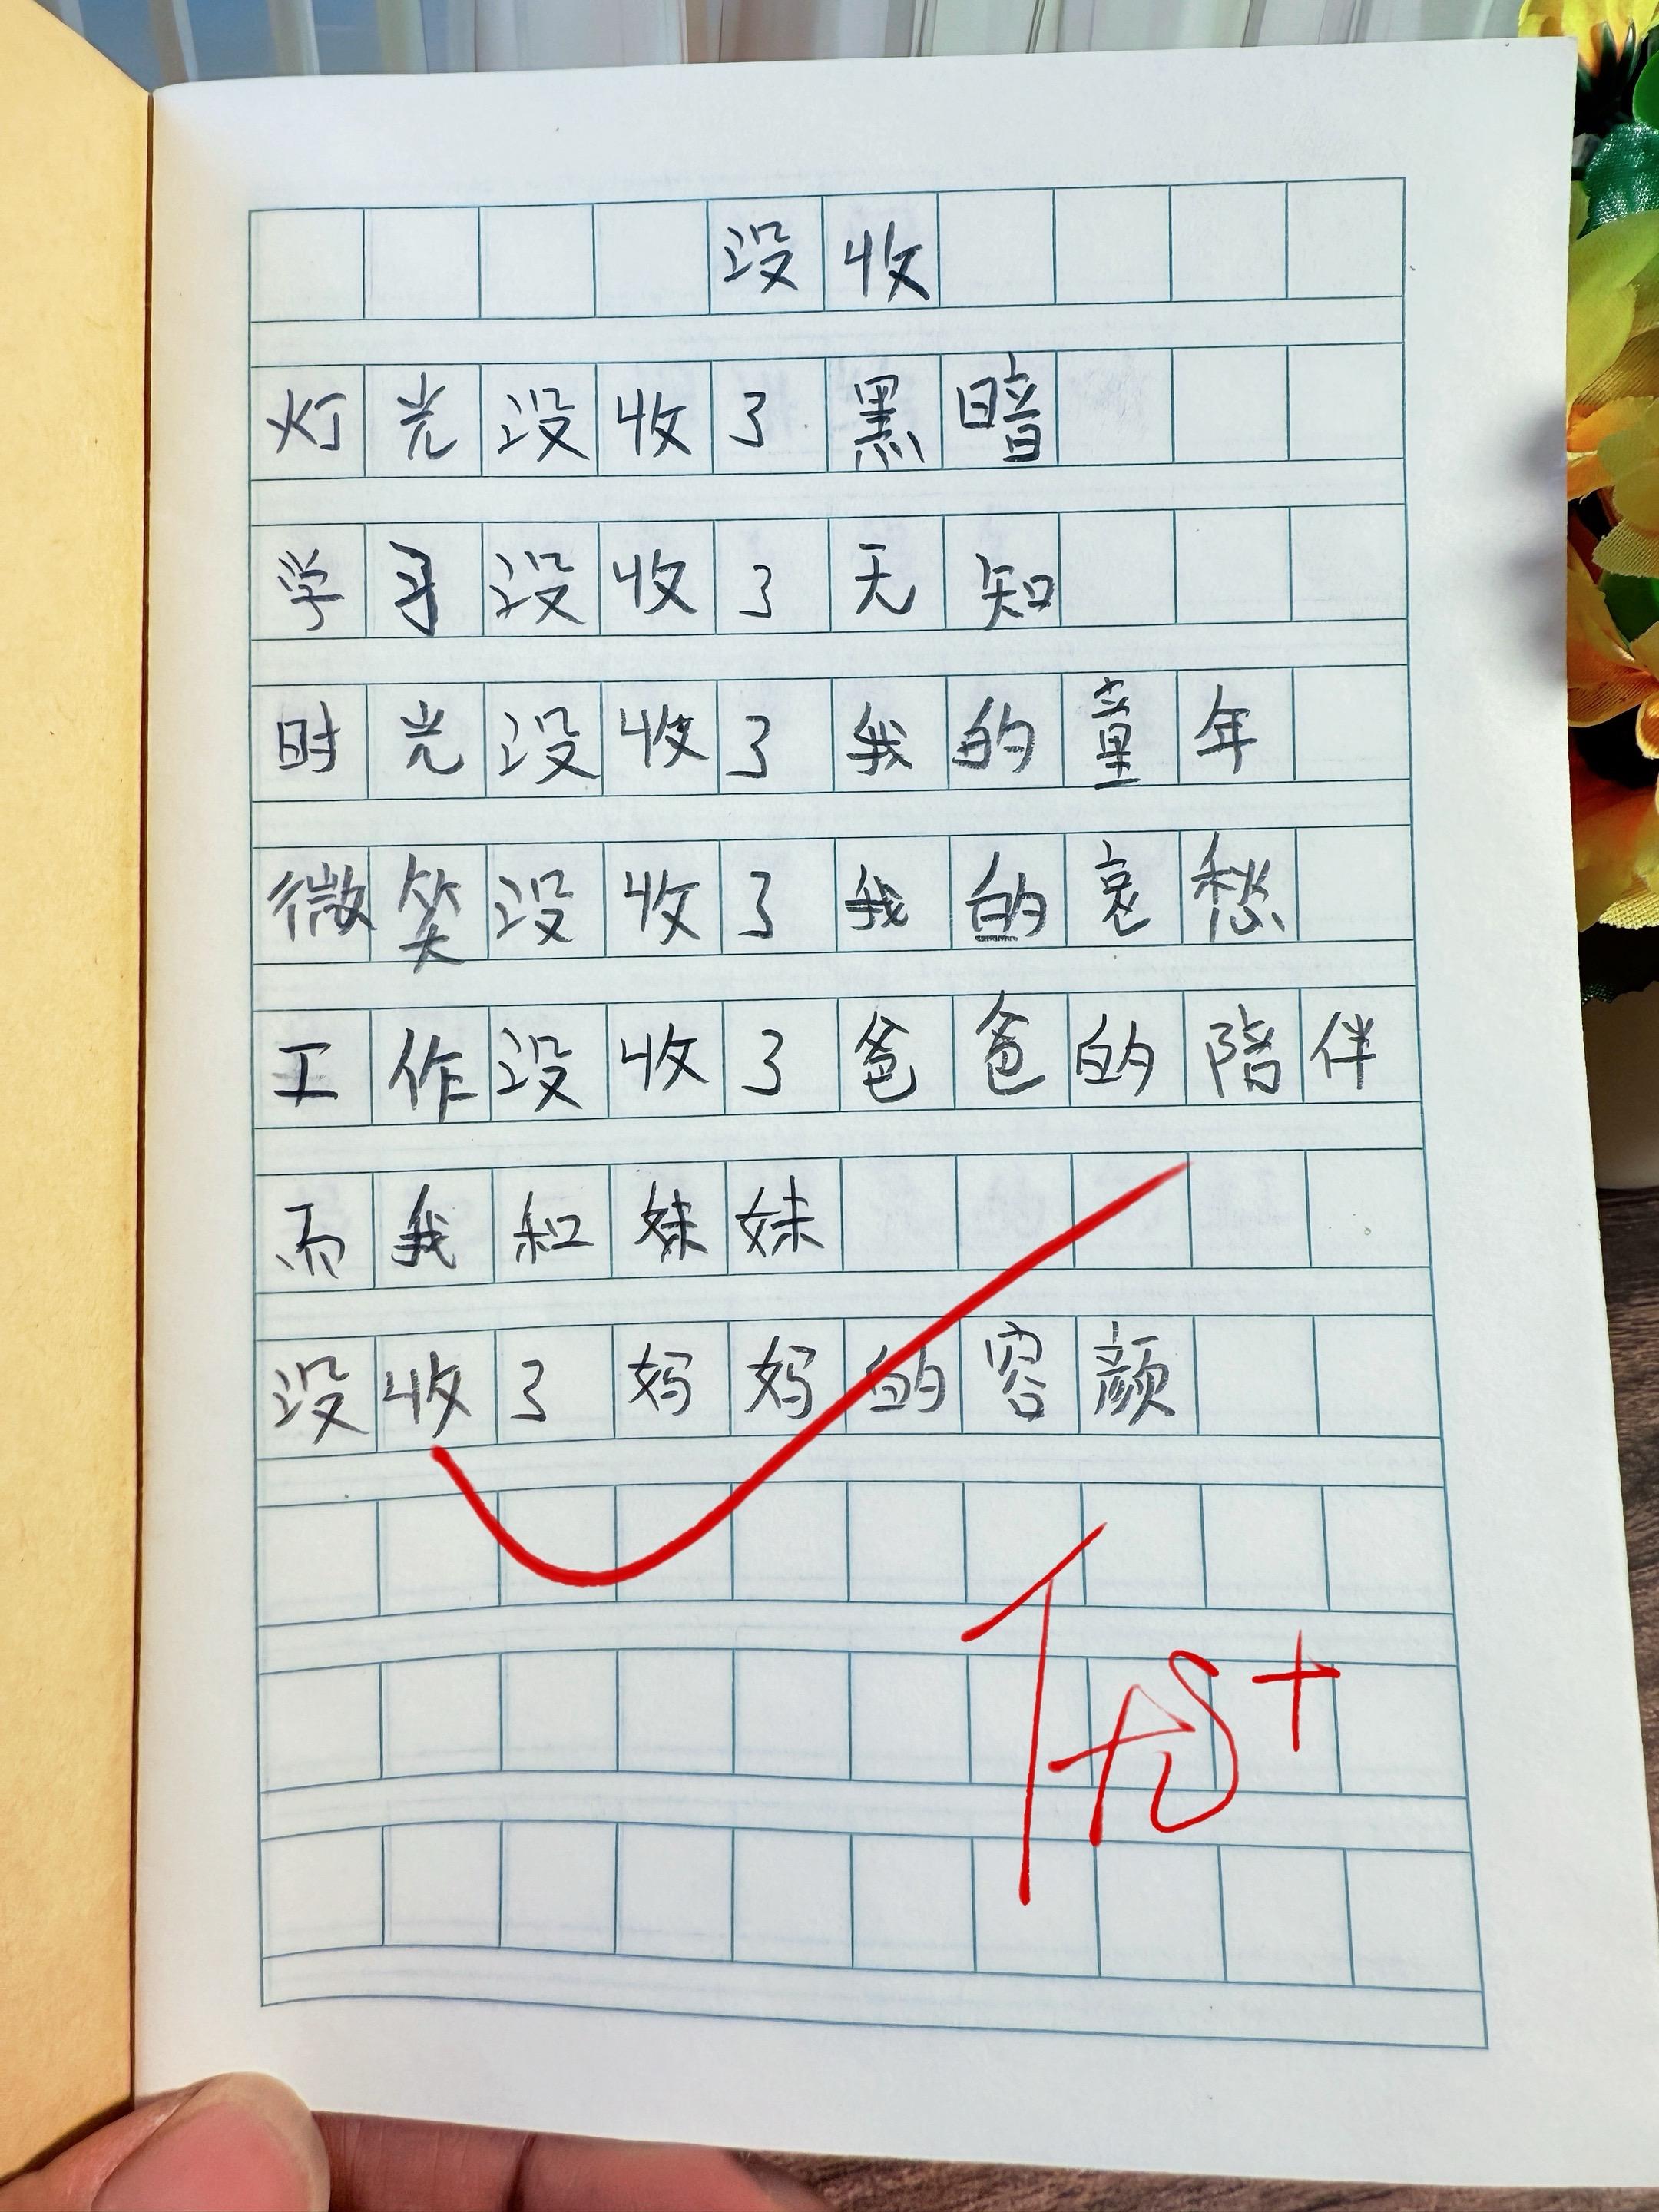 没收
灯光没收了黑暗
学习没收了无知
时光没收了我的童年
微笑没收了我的哀愁
工作没收了爸爸的陪伴
而我和妹妹
没收了妈妈的容颜
优+